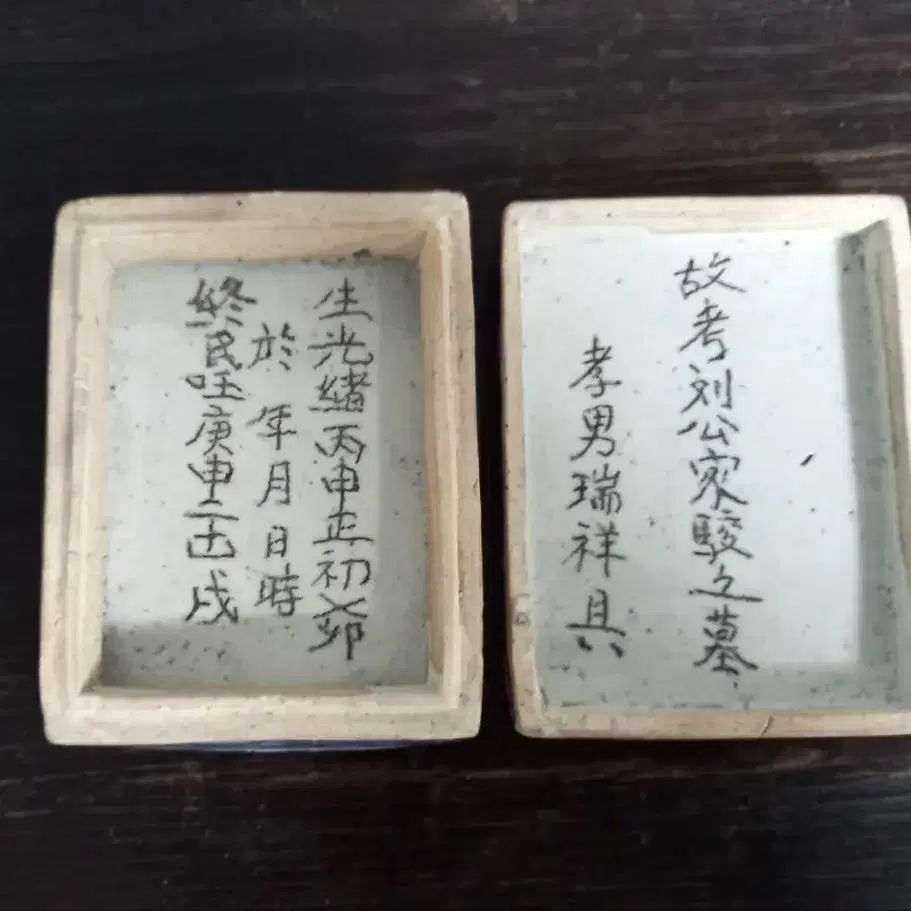 故考刘公家駿之墓
孝男瑞祥具
生光緒丙申正初卯
於年月日時
終民国庚申戌